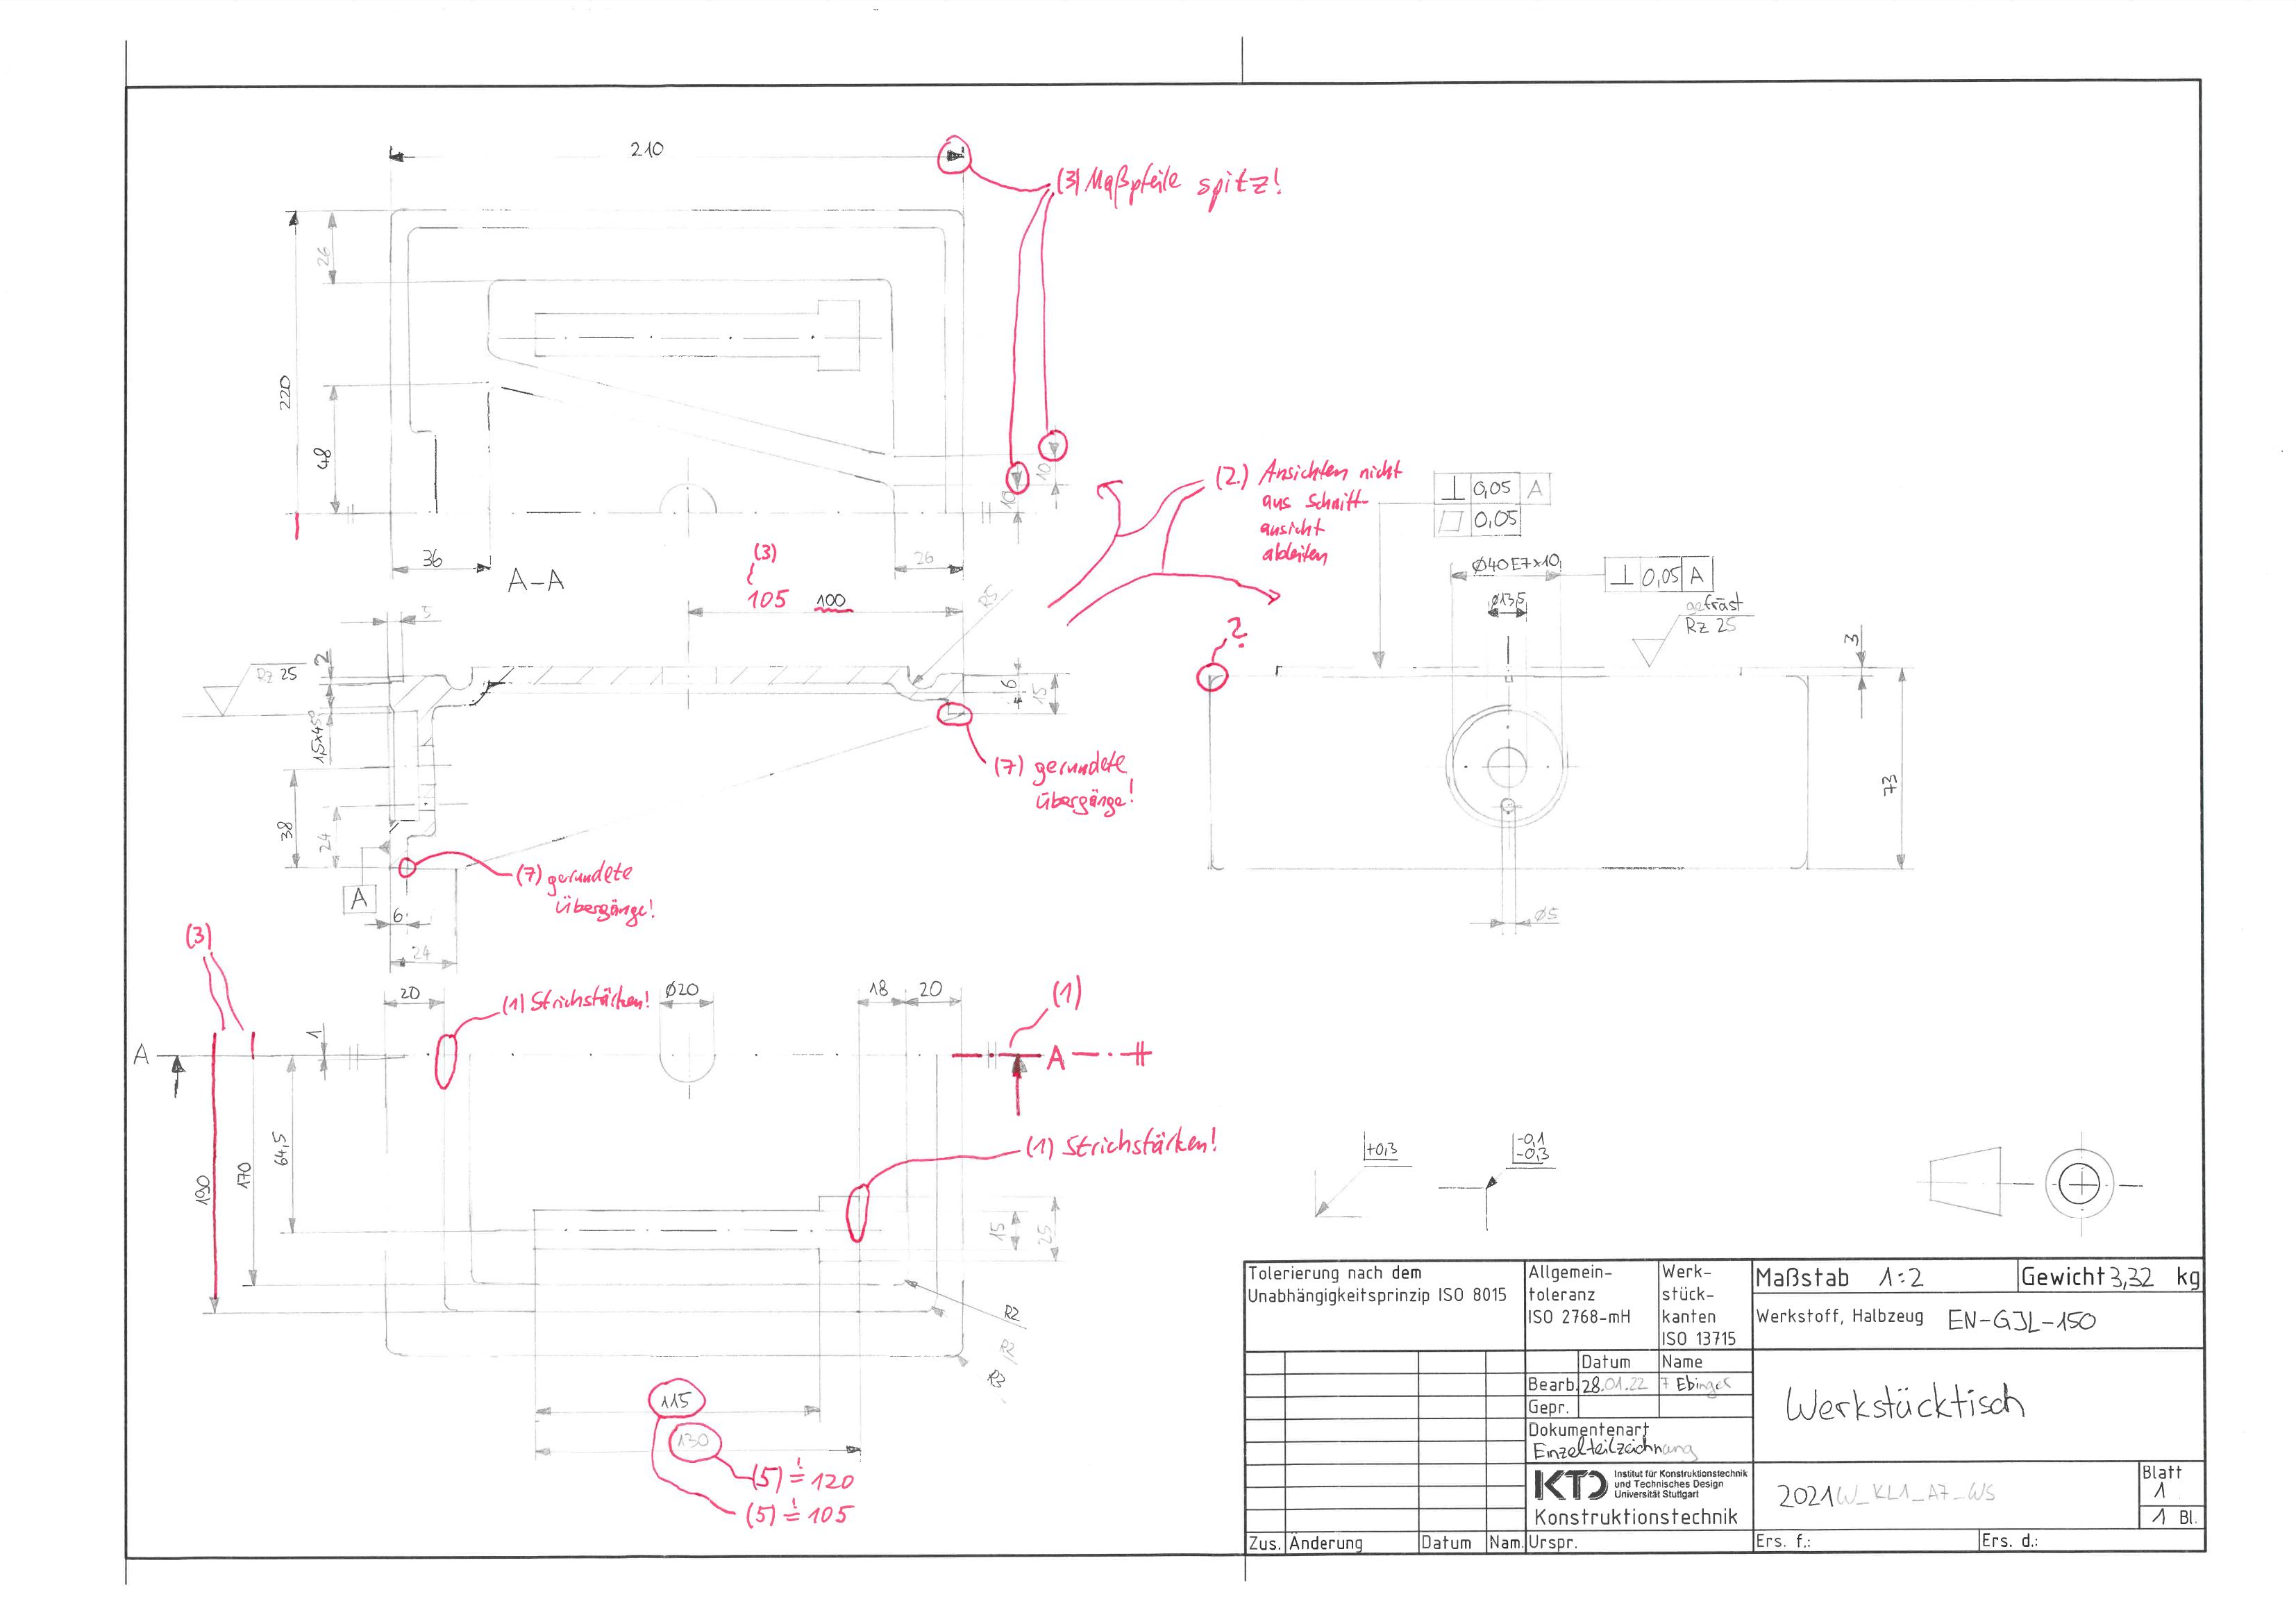 210
(3) Maßpfeile spitz!
26
220
48
10
10
(2.) Ansichten nicht
aus Schnitt-
ansicht
ableiten
⊥ 0,05 A
▱ 0,05
36
26
A-A
(3)
105 100
R5
Ø40E7x10
⊥ 0,05 A
Ø13,5
gefräst
Rz 25
?
5
3
Rz 25
2
6
15
1,5x45°
(7) gerundete
Übergänge!
73
38
24
(7) gerundete
Übergänge!
A
6
24
Ø5
(3)
20
(1) Strichstärken!
Ø20
18
20
(1)
1
A
A
64,5
(1) Strichstärken!
190
170
15
25
+0,3
-0,1
-0,3
R2
R2
R3
115
130
(5) ≟ 120
(5) ≟ 105
Tolerierung nach dem
Unabhängigkeitsprinzip ISO 8015
Allgemein-
toleranz
ISO 2768-mH
Werk-
stück-
kanten
ISO 13715
Maßstab 1:2
Gewicht 3,32 kg
Werkstoff, Halbzeug EN-GJL-150
Datum Name
Bearb. 28.01.22 7 Ebinger
Gepr.
Dokumentenart
Einzelteilzeichnung
Werkstücktisch
KTD Institut für Konstruktionstechnik
und Technisches Design
Universität Stuttgart
Konstruktionstechnik
2021W_KL1_A7_WS
Blatt
1
1 Bl.
Zus. Änderung Datum Nam. Urspr. Ers. f.: Ers. d.: